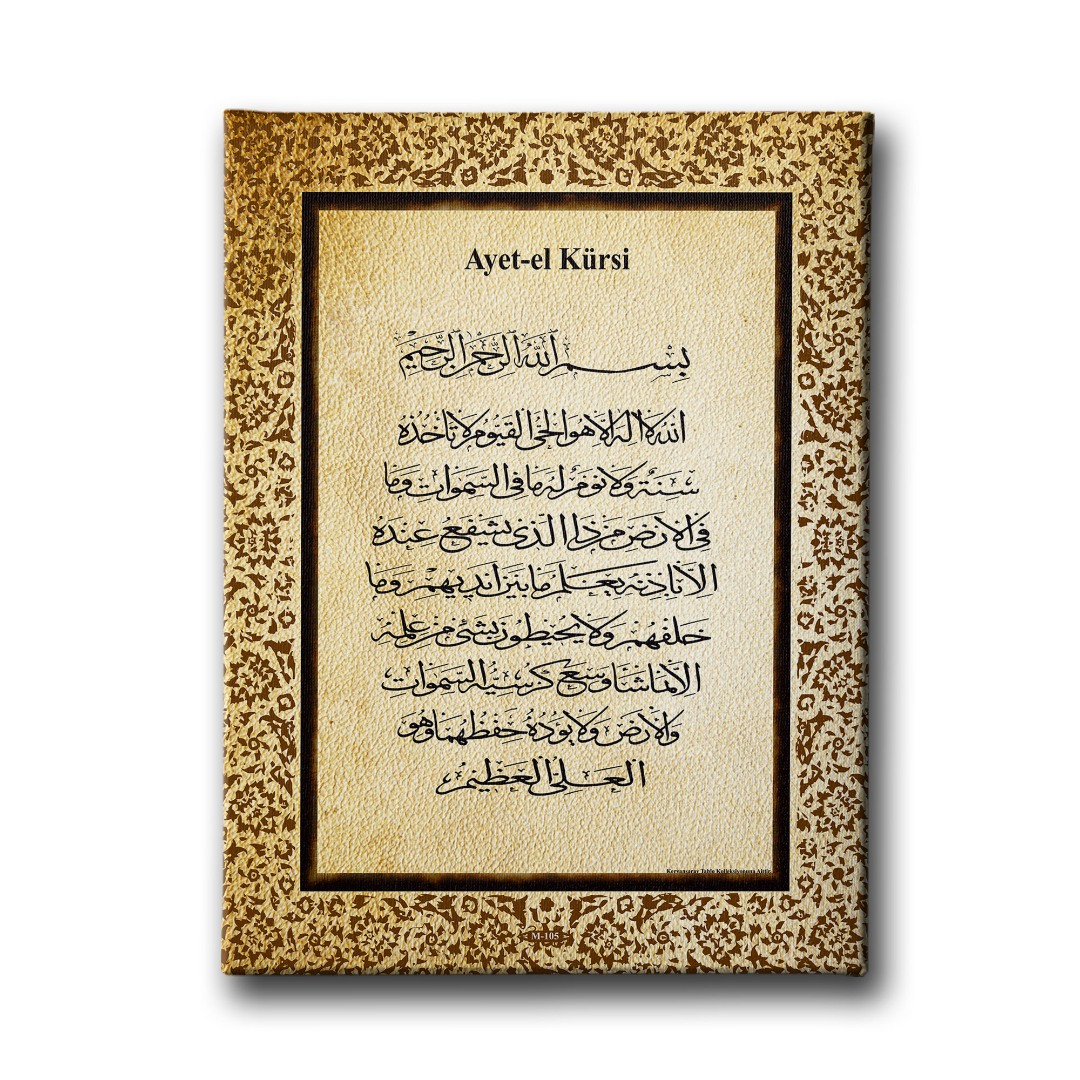 Ayet-el Kürsi
بسم الله الرحمن الرحيم
الله لا اله الا هو الحي القيوم لا تأخذه
سنة ولا نوم له ما في السموات وما
في الارض من ذا الذي يشفع عنده
الا باذنه يعلم ما بين ايديهم وما
خلفهم ولا يحيطون بشئ من علمه
الا بما شاء وسع كرسيه السموات
والارض ولا يؤده حفظهما وهو
العلي العظيم
Kervansaray Tablo Kolleksiyonuna Aittir
M-105